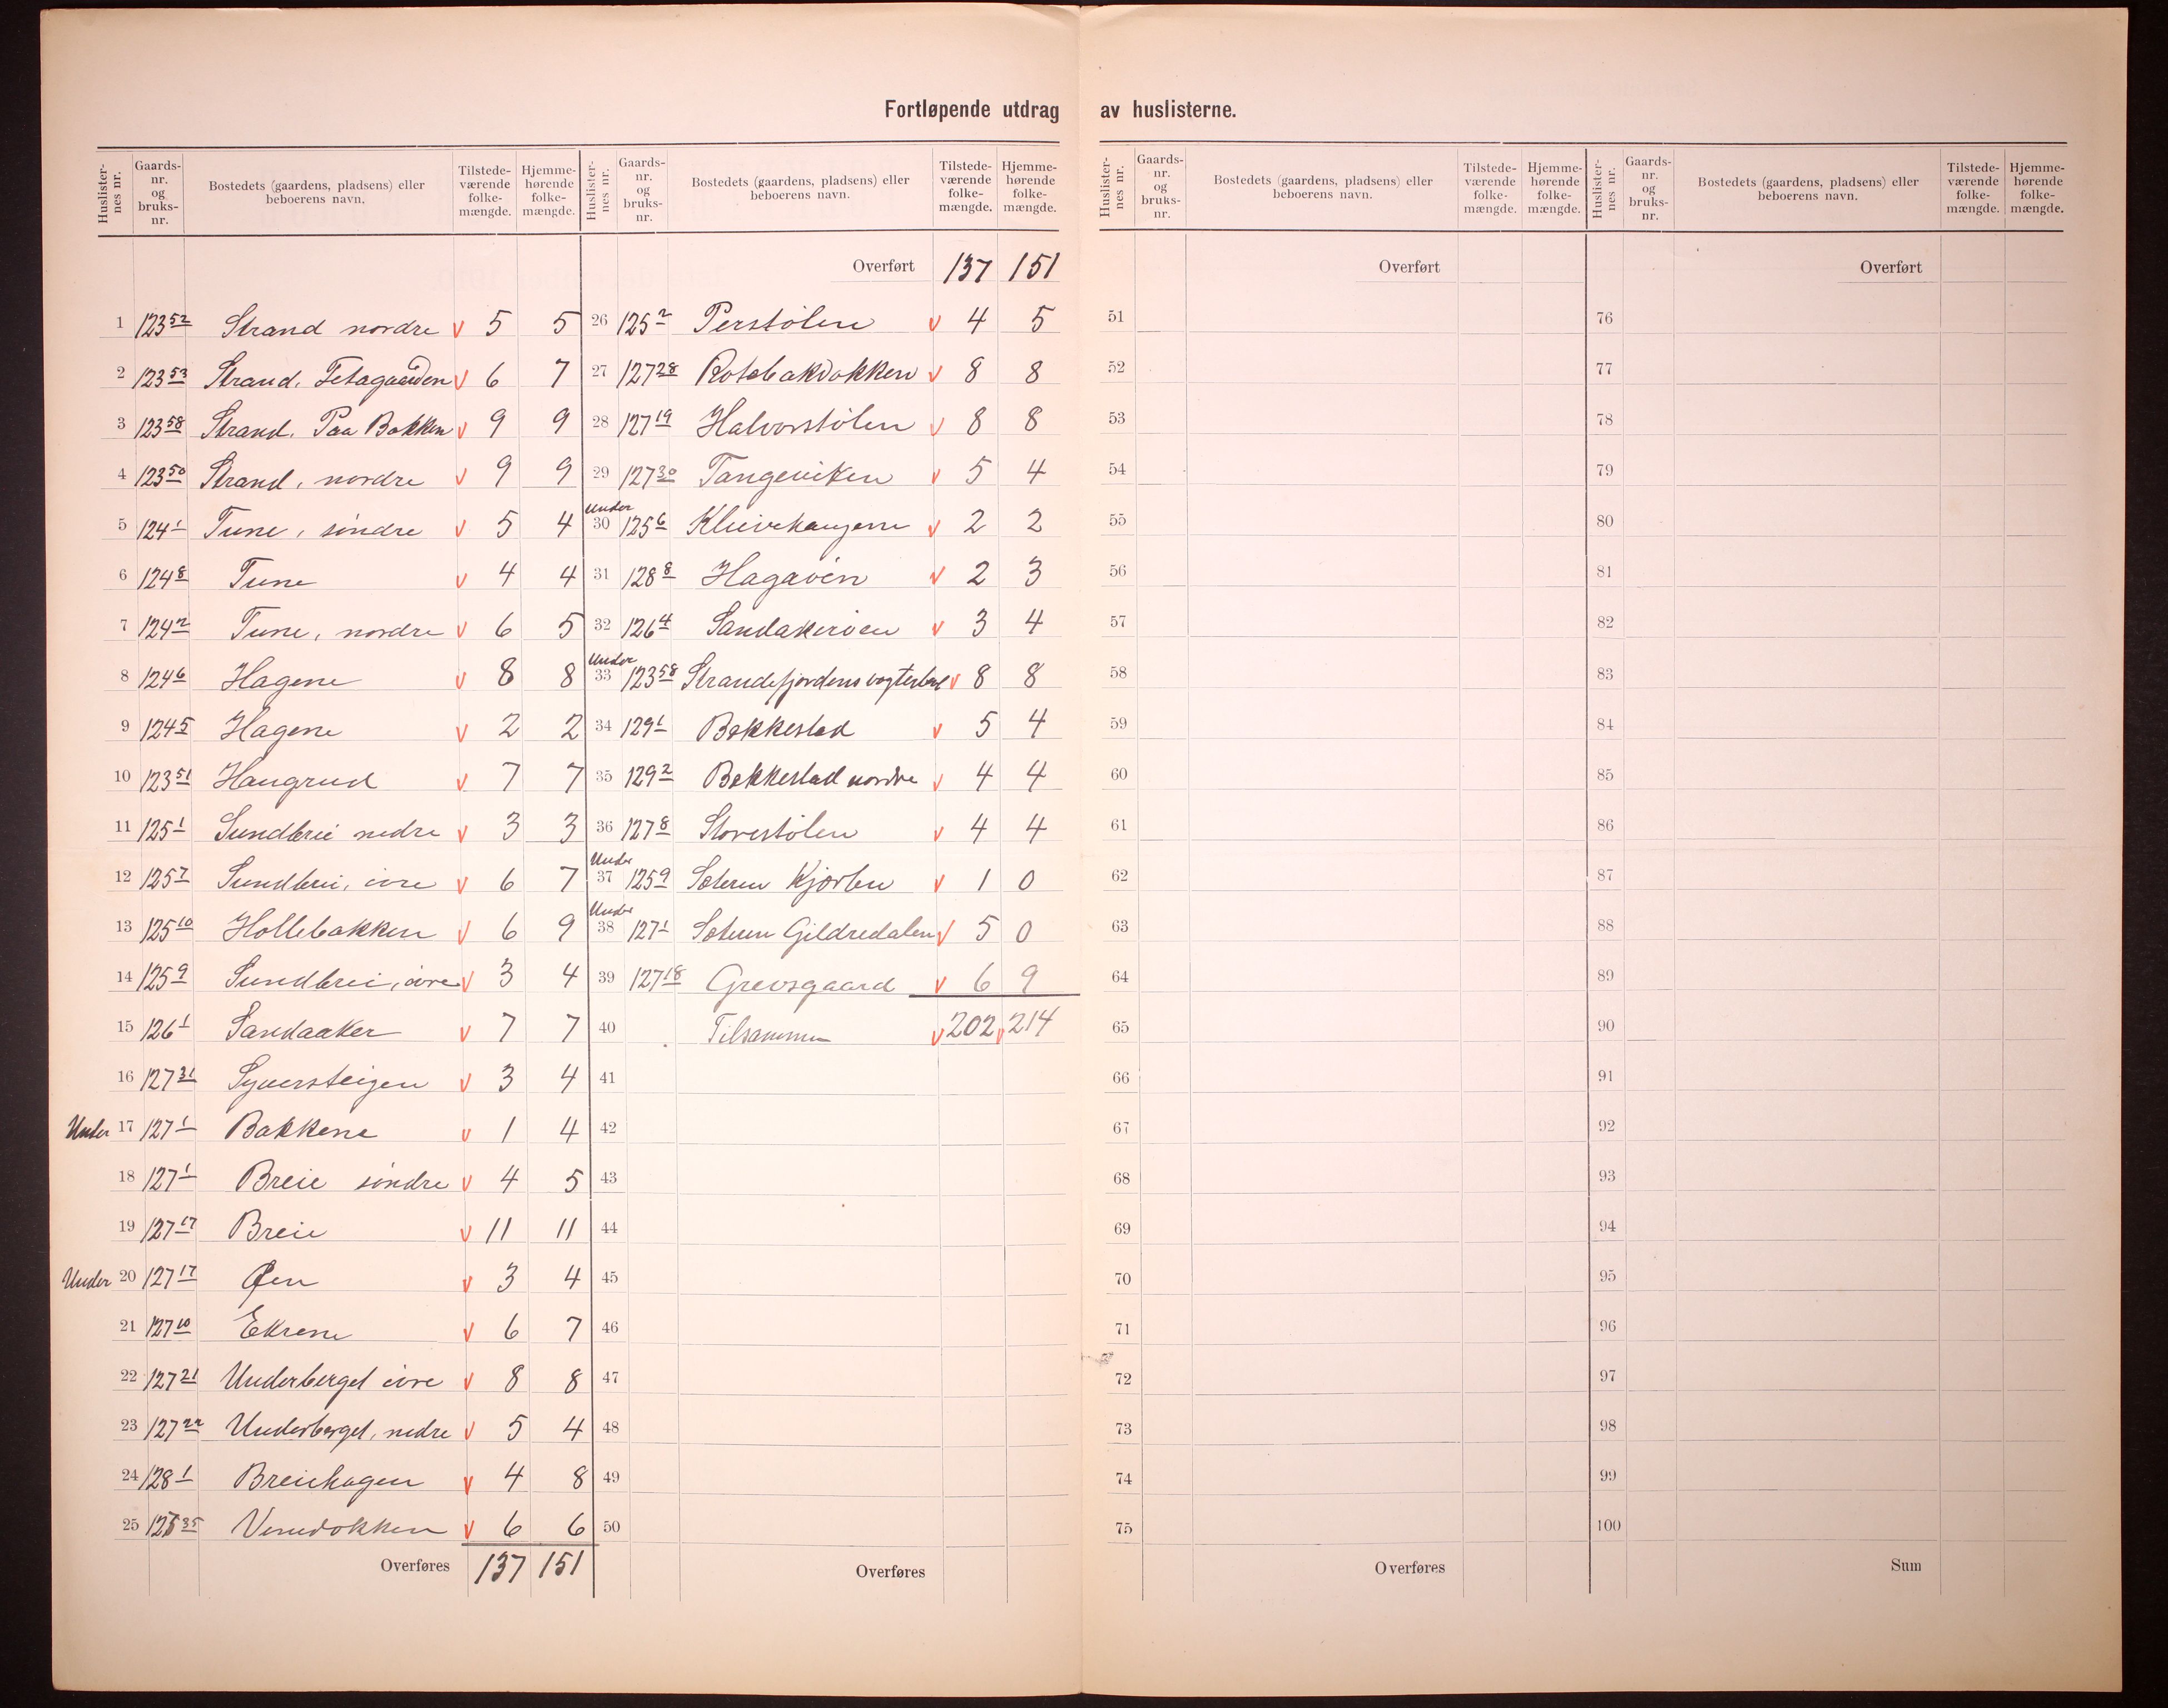 Fortløpende utdrag av huslisterne.
Huslisternes nr. Gaardsnr. og bruksnr. Bostedets (gaardens, pladsens) eller beboerens navn. Tilstedeværende folkemængde. Hjemmehørende folkemængde.
1 123 52 Strand nordre v 5 5
2 123 53 Strand, v 6 7
3 123 58 Strand. Paa Bakken v 9 9
4 123 50 Strand, nordre v 9 9
5 124 1 Tune, søndre v 5 4
6 124 8 Tune v 4 4
7 124 2 Tune, nordre v 6 5
8 124 6 Hagene v 8 8
9 124 5 Hagene v 2 2
10 123 51 Haugrud v 7 7
11 125 1 Sundbrei nedre v 3 3
12 125 7 Sundbrei, øvre v 6 7
13 125 10 Hollebakken v 6 9
14 125 9 Sundbrei, øvre v 3 4
15 126 1 Sandaaker v 7 7
16 127 31 Syversteigen v 3 4
Under 17 127 1 Bakkene v 1 4
18 127 1 Breie søndre v 4 5
19 127 17 Breie v 11 11
Under 20 127 17 Øen v 3 4
21 127 10 Ekrene v 6 7
22 127 21 Underberget øvre v 8 8
23 127 22 Underberget, nedre v 5 4
24 128 1 Breiehagen v 4 8
25 35 v 6 6
Overføres 137 151
Huslisternes nr. Gaardsnr. og bruksnr. Bostedets (gaardens, pladsens) eller beboerens navn. Tilstedeværende folkemængde. Hjemmehørende folkemængde.
Overført 137 151
26 125 2 Perstølen v 4 5
27 127 28 Rotebakdokken v 8 8
28 127 19 Halvorstølen v 8 8
29 127 30 Tangeviken v 5 4
Under
30 125 6 Kleivehaugene v 2 2
31 128 8 Hagaøen v 2 3
32 126 4 Sandakerøen v 3 4
Under
33 123 58 Strandefjordens v 8 8
34 129 1 Bakkestad v 5 4
35 129 2 Bakkestad nordre v 4 4
36 127 8 Storestølen v 4 4
Under
37 125 9 Sæteren v 1 0
Under
38 127 1 Sæteren Gildredalen v 5 0
39 127 18 Grevsgaard v 6 9
40 Tilsammen v 202 v 214
41
42
43
44
45
46
47
48
49
50
Overføres
Huslisternes nr. Gaardsnr. og bruksnr. Bostedets (gaardens, pladsens) eller beboerens navn. Tilstedeværende folkemængde. Hjemmehørende folkemængde.
Overført
51
52
53
54
55
56
57
58
59
60
61
62
63
64
65
66
67
68
69
70
71
72
73
74
75
Overføres
Huslisternes nr. Gaardsnr. og bruksnr. Bostedets (gaardens, pladsens) eller beboerens navn. Tilstedeværende folkemængde. Hjemmehørende folkemængde.
Overført
76
77
78
79
80
81
82
83
84
85
86
87
88
89
90
91
92
93
94
95
96
97
98
99
100
Sum